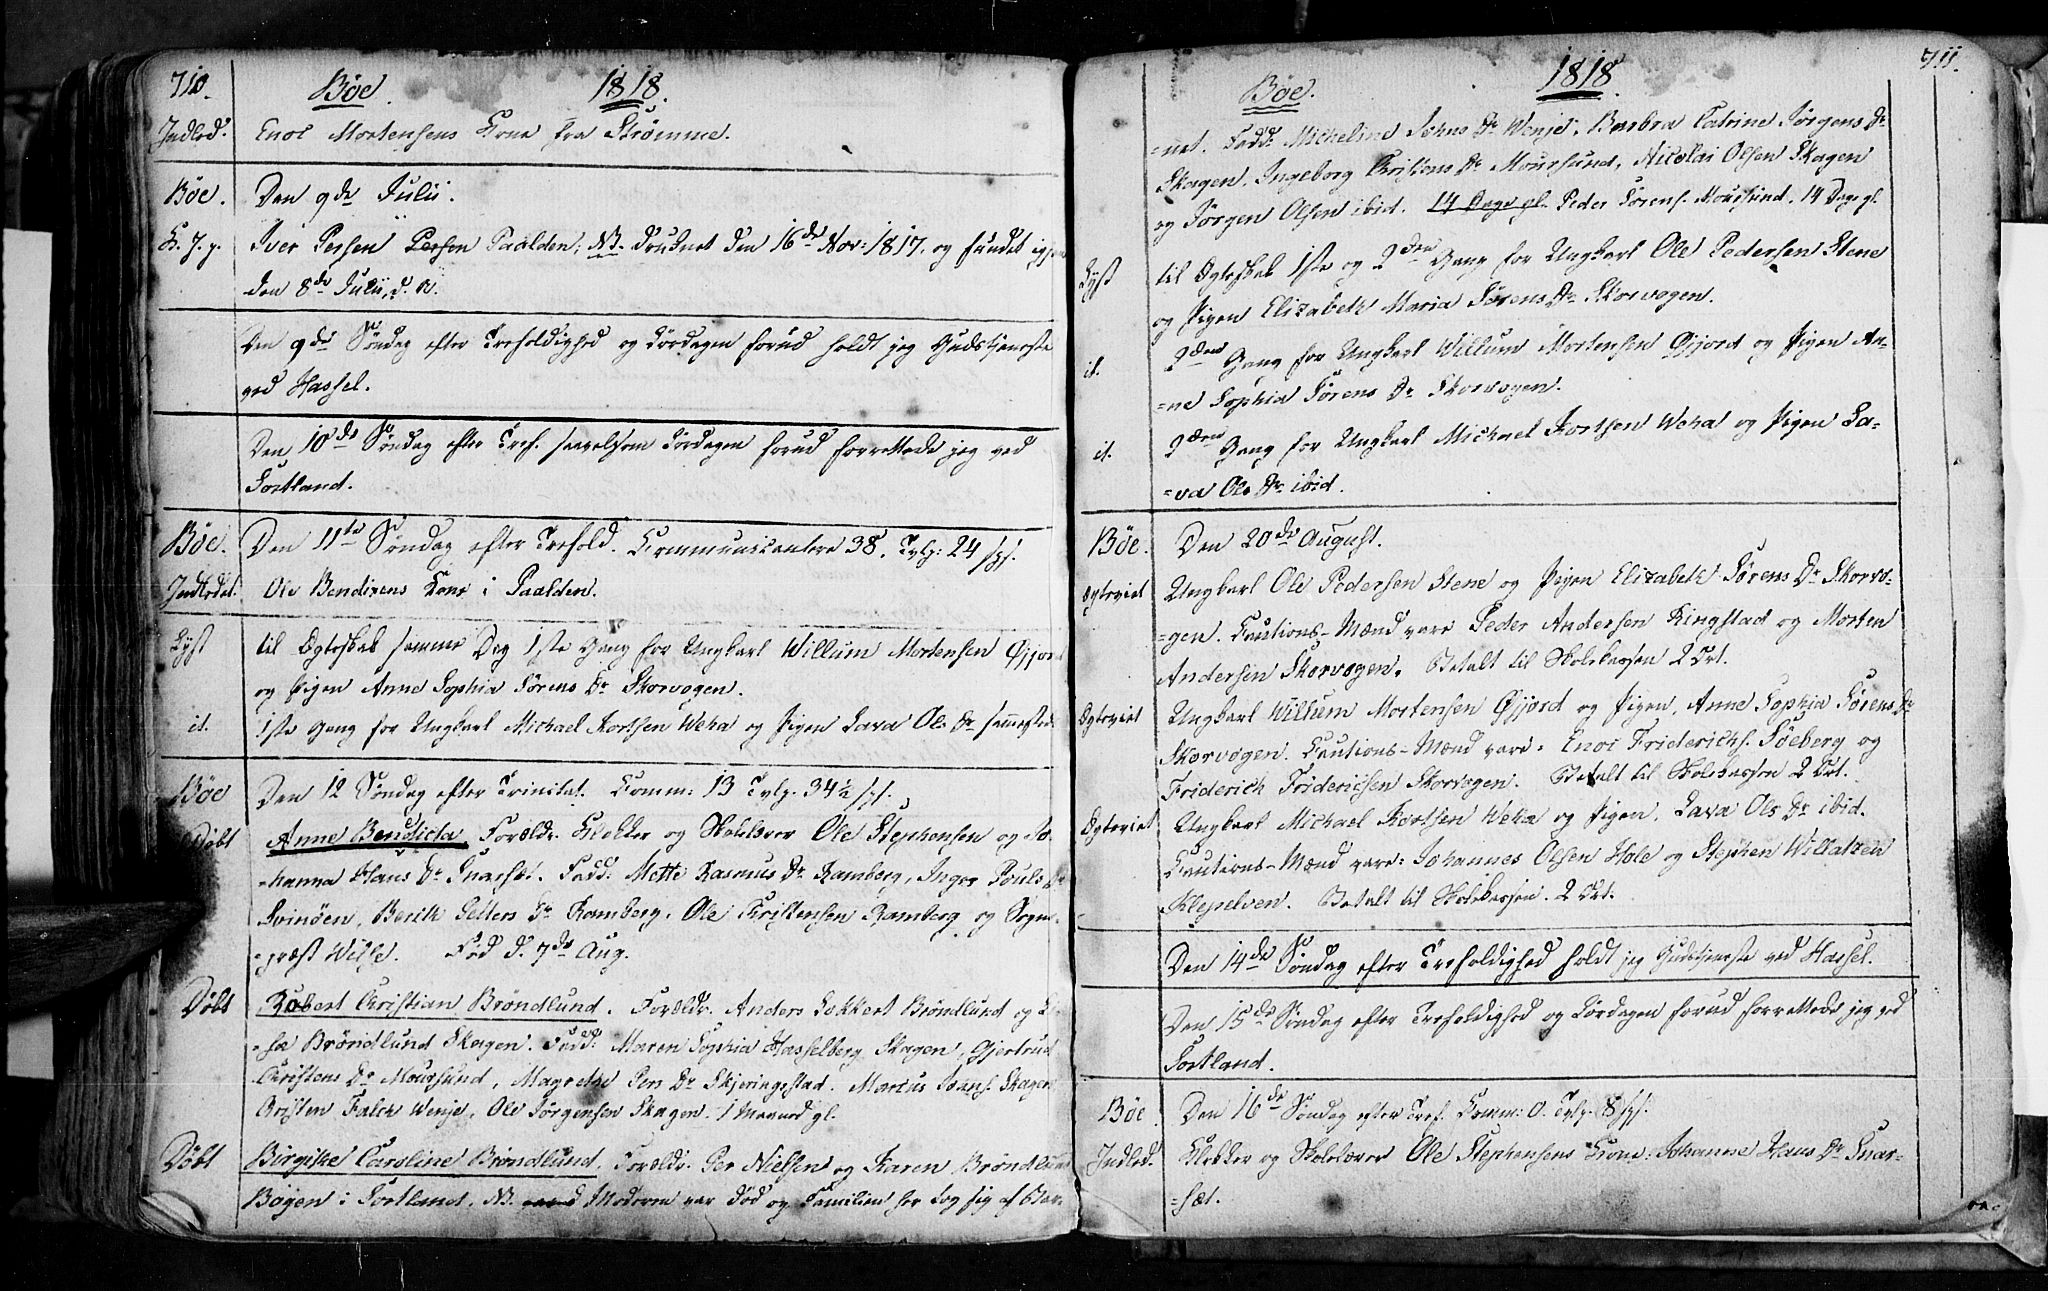 710.
Böe. 1818.
Indled. Enoc Mortensens Kone fra Strømme.
Böe. Den 9de Julii.
K. J. p. Iver Persen Persen Paalden, NB. druknet den 16de Nov: 1817, og fundet igjen
den 8de Julii, d. A.
Den 9de Søndag efter Trefoldighed og Lördagen forud holdt jeg Gudstjeneste
ved Hassel.
Den 10de Søndag efter Tref. saavelsom Lördagen forud forrettede jeg ved
Sortland.
Böe. Den 11te Søndag efter Trefold. Communicantere 38. Tvlg: 24 sps.
Indledet. Ole Bendixens Kone i Paalden.
Lyst til Ægteskab samme Dag 1ste Gang for Ungkarl Willum Mortensen Øjjord
og Pigen Anne Sophia Sørens Dr Skorvogen.
it. 1ste Gang for Ungkarl Michael Kortsen Weka og Pigen Lava Ols Dr sammesteds.
Böe Den 12 Søndag efter Trinitat. Comm: 13 Tvlg. 34½ sps.
Døbt Anne Bendicta, Forældr. Klokker og Skolelærer Ole Stephensen og Jo-
=hanna Hans Dr Snarset. Fadd: Mette Rasmus Dr Ramberg, Inger Pouls Dr
Svinöen, Berith Petters Dr Ramberg, Ole Christensen Ramberg og Sogne-
=præst Wilse. Fød d. 7de Aug.
Døbt Robert Christian Bröndlund. Forældr. Anders Lokkert Bröndlund og
=sa Bröndlund Skagen. Fadd: Maren Sophia Hasselberg Skagen, Gjertrud
Christens Dr Moursund, Magrethe Pers Dr Skjeringstad. Marcus Joens. Skagen
Christen Falch Wenje, Ole Jörgensen Skagen. 1 Maaned gl.
Døbt Birgithe Caroline Bröndlund. Forældr. Per Nielsen og Karen Bröndlund
Bogen i Sortland. NB. Moderen var död og Familien her tog sig af Bar-
711.
Böe. 1818.
=net. Fadd: Micheline Johns Dr Wenje, Barbra Catrine Jörgens Dr
Skagen. Ingeborg Christens Dr Moursund, Nicolai Olsen Skagen
og Jörgen Olsen ibid. 14 Dage gl. Peder Sörens. Moursund. 14 Dage gl.
Lyst til Ægteskab 1ste og 2den Gang for Ungkarl Ole Pedersen Stene
og Pigen Elizabeth Maria Sørens Dr Skorvogen.
it. 2den Gang for Ungkarl Willum Mortensen Øjjord og Pigen An-
=ne Sophia Sörens Dr Skorvogen.
it. 2den Gang for Ungkarl Michael Kortsen Weka og Pigen La-
=va Ols Dr ibid.
Böe. Den 20de August.
Ægteviet Ungkarl Ole Pedersen Stene og Pigen Elizabeth Sørens Dr Skorvo-
=gen. Cautions-Mænd vare Peder Andersen Ringstad og Morten
Andersen Skorvogen. Betalt til Skolekassen 2 Ort.
Ægteviet Ungkarl Willum Mortensen Øjjord og Pigen, Anne Sophia Sørens Dr
Skorvogen. Cautions-Mænd vare: Enoc Friderichs. Söeberg og
Friderich Friderichsen Skorvogen. Betalt til Skolekassen 2 Ort.
Ægteviet Ungkarl Michael Kortsen Weka og Pigen, Lava Ols Dr ibid.
Cautions-Mænd vare: Johannes Olsen Hole og Stephen Willatzen
Klepelven. Betalt til Skolekassen. 2 Ort.
Den 14de Søndag efter Trefoldighed holdt jeg Gudstjeneste ved Hassel.
Den 15de Søndag efter Trefoldighed og Lördagen forud forrettede jeg ved
Sortland.
Böe. Den 16de Søndag efter Tref. Comm: 0. Tvlg. 8 sps.
Indled. Klokker og Skolelærer Ole Stephensens Kone: Johanne Hans Dr Snar-
=sæt.